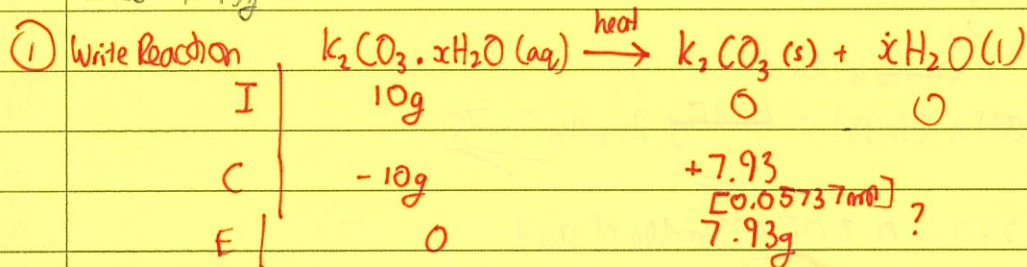 ① Write Reaction K₂CO₃ . xH₂O (aq) heat → K₂CO₃ (s) + xH₂O (l)
I 10g 0 0
C - 10g +7.93
[0.05737 mol] ?
E 0 7.93g